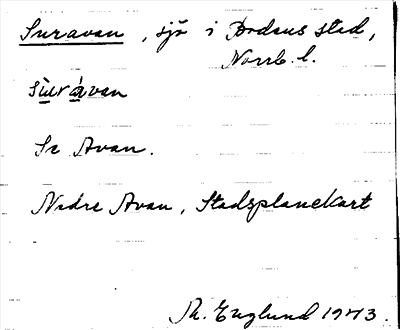 Suravan, sjö i Bodens stad,
Norrb. l.
sùrávan
Se Avan.
Nedre Avan, Stadsplanekart
Th. Englund 1943.